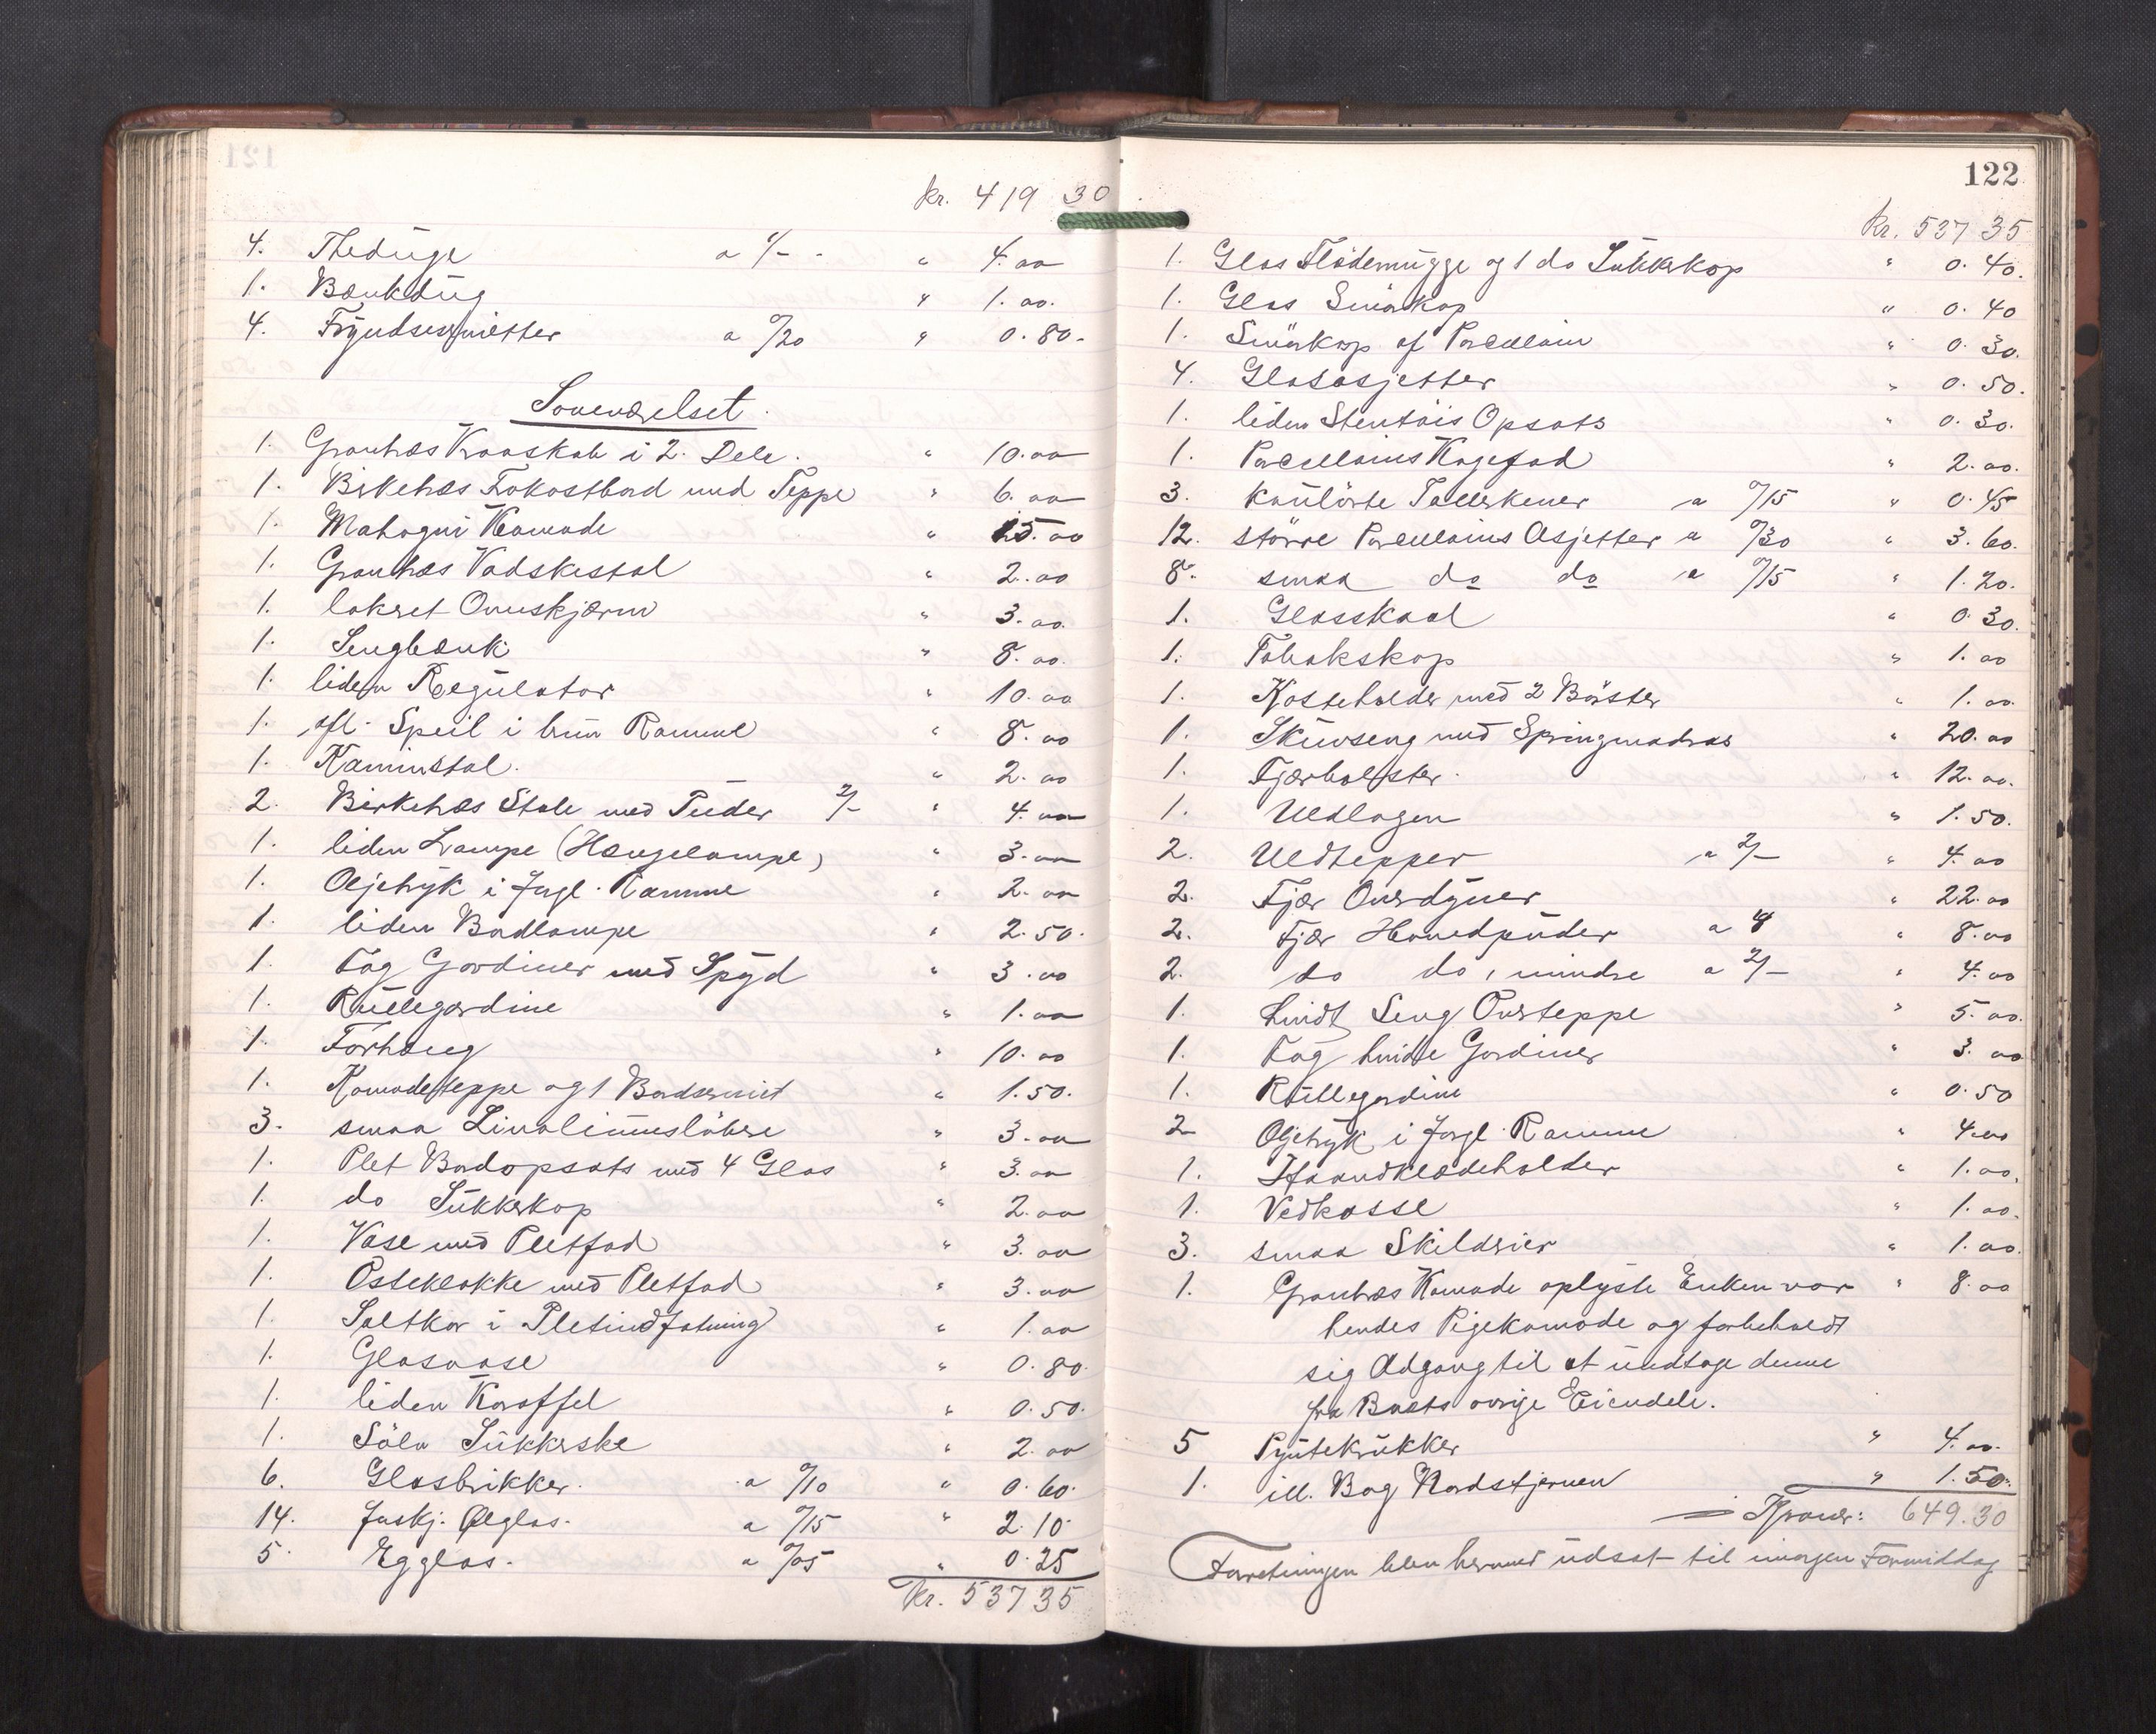 kr. 419 30
4. Theduge a 1/- " 4.00
1. Bænkdug " 1.00.
4. Fryndseservietter a 0/20 " 0.80.
Soveværelset.
1. Grantræs Kroskab i 2. Dele. " 10.00
1. Birketræs Frokostbord med Teppe " 6.00
1. Mahogni Komode " 15.00
1. Grantræs Vadskestol " 2.00
1. lakeret Ovnskjærm " 3.00.
1. Sengbænk " 8.00.
1. liden Regulator " 10.00
1. afl. Speil i brun Ramme " 8.00
1. Kaminstol. " 2.00
2. Birketræs Stole med Puder 2/- " 4.00
1. liden Lampe (Hængelampe) " 3.00
1. Oljetryk i forgl. Ramme " 2.00
1. liden Bordlampe " 2.50.
1. Fag Gardiner med Spyd " 3.00
1. Rullegardine " 1.00
1. Forhæng " 10.00
1. Komodeteppe og 1 Bordserviet " 1.50.
3. smaa Linoliumsløbere " 3.00
1. Plet Bordopsats med 4 Glas " 3.00
1. do Sukkerkop " 2.00
1. Vase med Pletfad " 3.00
1. Osteklokke med Pletfad " 3.00
1. Saltkar i Pletindfatning " 1.00
1. Glasvase " 0.80.
1. liden Karaffel " 0.50.
1. Sölv Sukkerske " 2.00
6. Glasbrikker. a 0/10 " 0.60.
14. forskj. Ølglas. a 0/15 " 2.10
5. Egglas. a 0/05 " 0.25
kr. 537 35
122
kr. 537 35
1. Glas Flödemugge og 1 do Sukkerkop " 0.40.
1. Glas Smörkop " 0.40
1. Smörkop af Porcellain " 0.30.
4. Glasasjetter " 0.50.
1. liden Stentöis Opsats " 0.30.
1. Porcellains Kagefad " 2.00.
3. kulörte Tallerkener a 0/15 " 0.45
12. större Porcellains Asjetter a 0/30 " 3.60.
8. smaa do do a 0/15 " 1.20.
1. Glasskaal " 0.30.
1. Tobakskop " 1.00
1. Kosteholder med 2 Börster " 1.00.
1. Skuvseng med Springmadras " 20.00
1. Fjærbolster. " 12.00.
1. Uldlagen " 1.50.
2. Uldtepper a 2/- " 4.00
2. Fjær Overdyner " 22.00
2. Fjær Hovedpuder a 4 " 8.00
2. do do, mindre a 2/- " 4.00
1. hvidt Seng Overteppe " 5.00.
1. Fag hvide Gardiner " 3.00
1. Rullegardin " 0.50
2 Oljetryk i forgl. Ramme " 4.00
1. Haandklædeholder " 1.00.
1. Vedkasse " 1.00.
3. smaa Skildrier " 1.00.
1. Grantræs Komode oplyste Enken var " 8.00
hendes Pigekomode og forbeholdt
sig Adgang til at undtage denne
fra Boets øvrige Eiendele.
5 Pyntekrukker " 4.00.
1. ill. Bog Nordstjernen " 1.50.
Kroner: 649.30
Forretningen blev hermed udsat til imorgen Formiddag